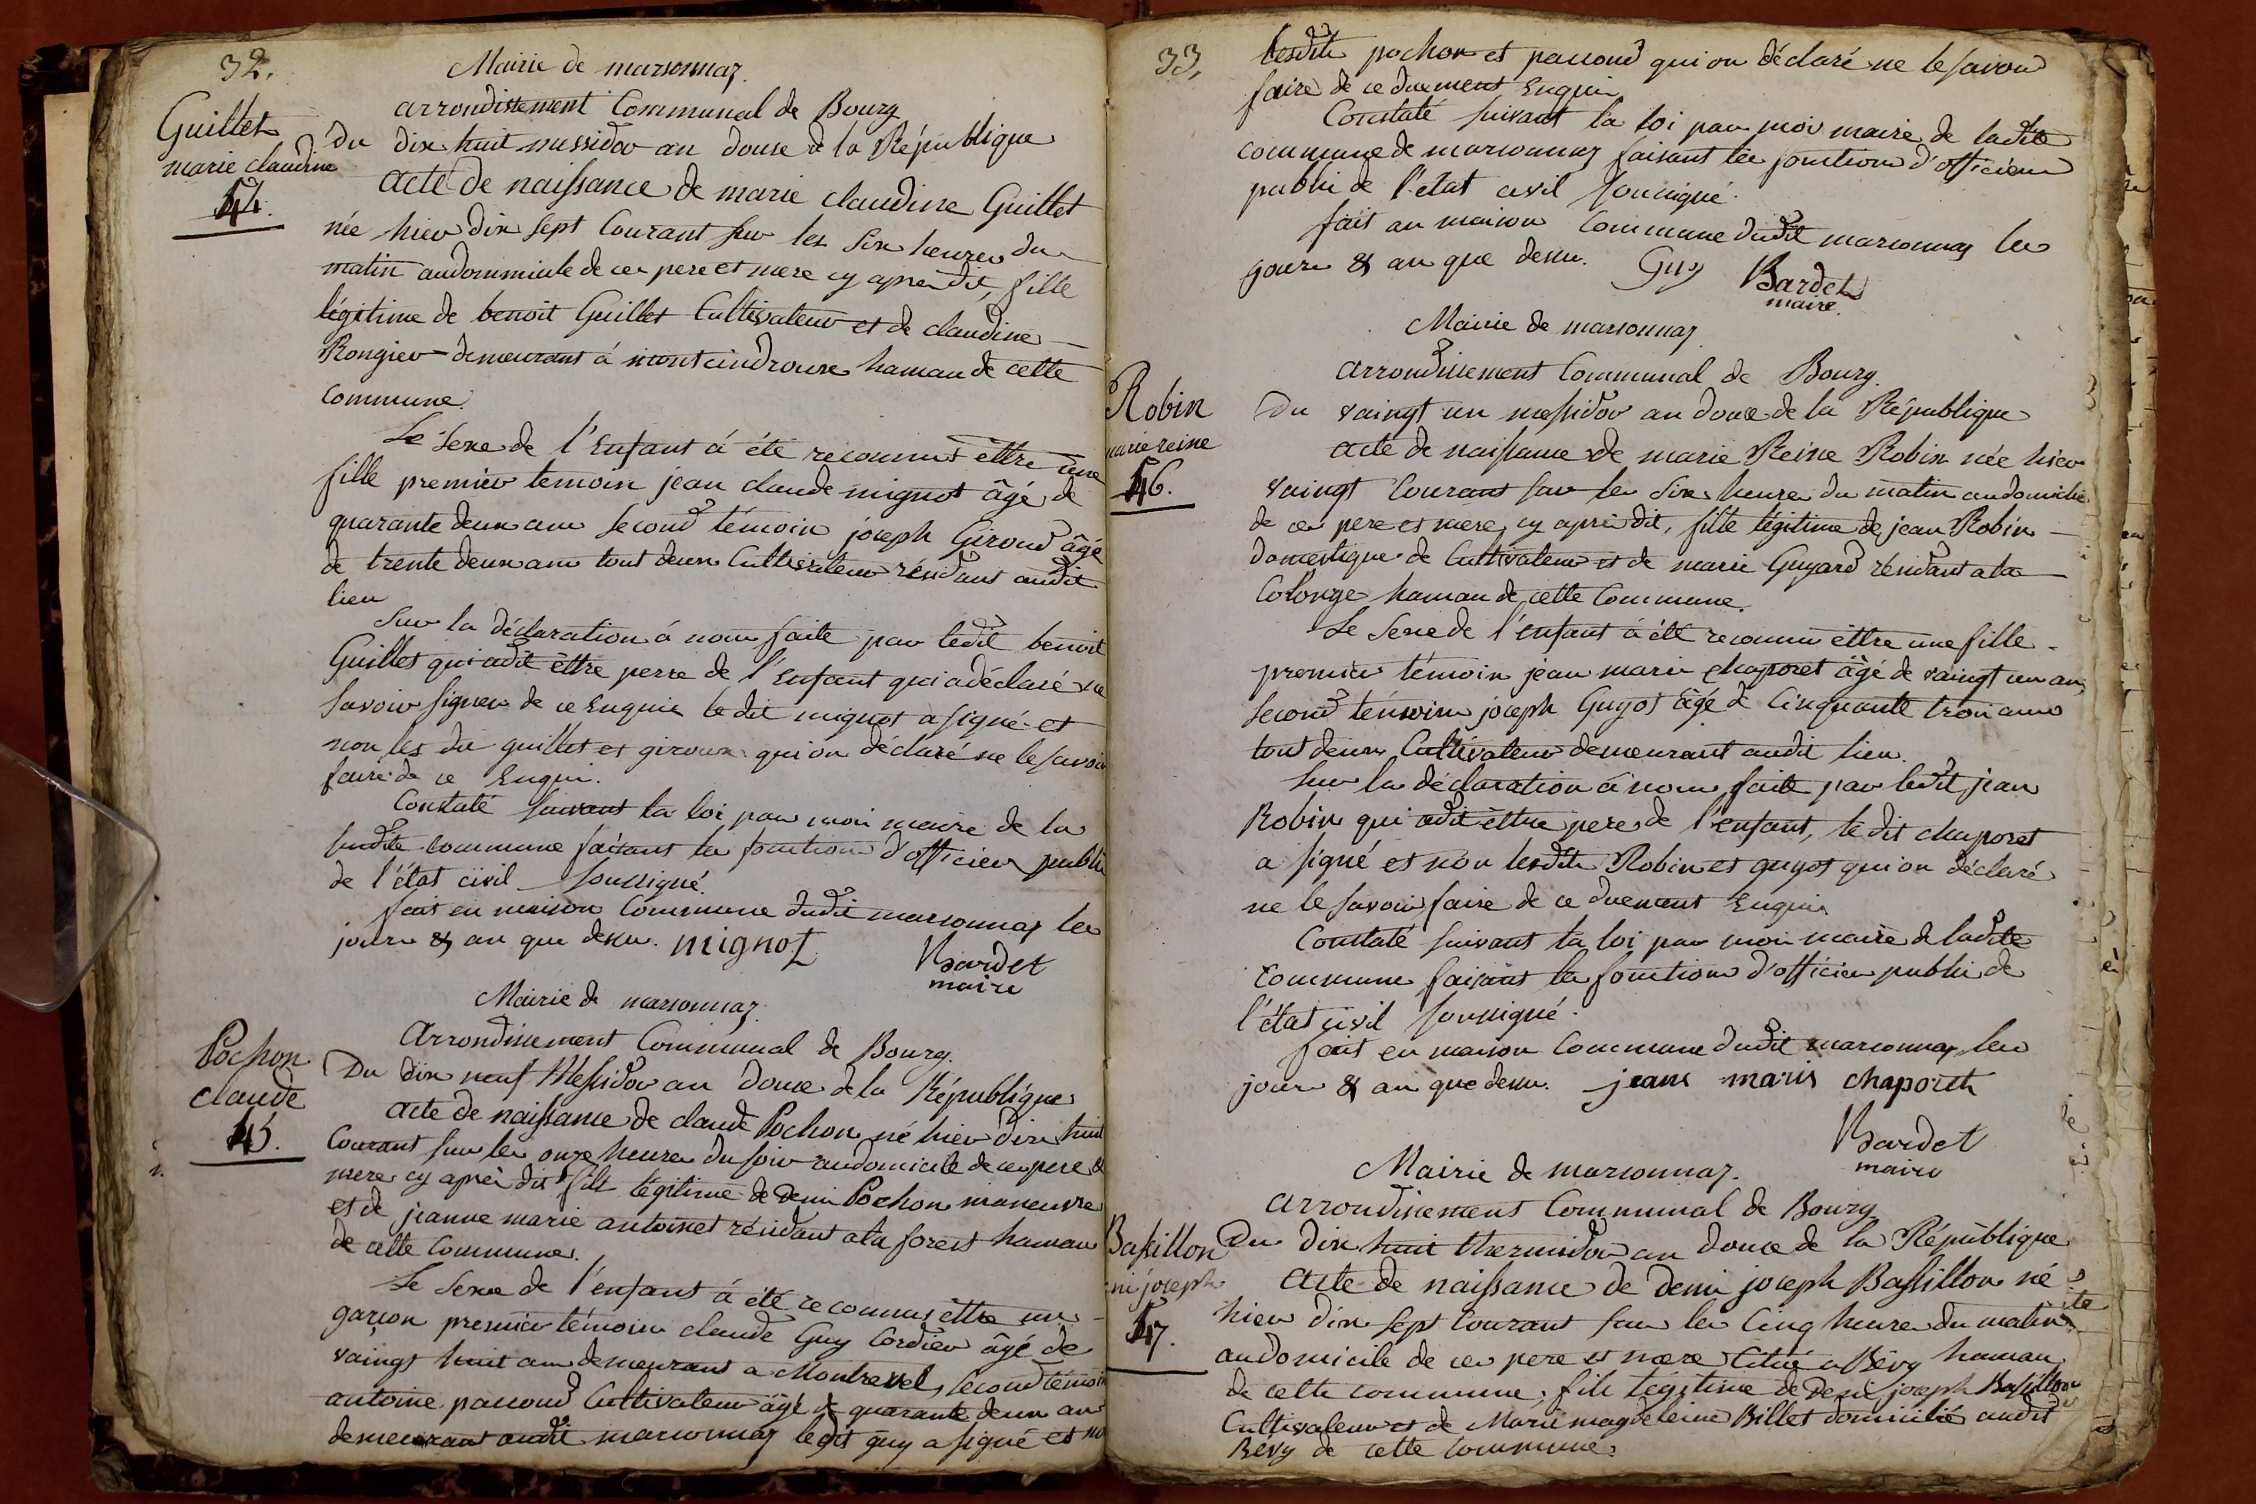 32.
Mairie de marsonnaz.
arrondissement Communal de Bourg
Guillet
marie claudine
44.
Du dix huit messidor an douse d la République
acte de naissance de marie claudine Guillet
née hier dix sept Courant sur les six heures du
matin audommicile de ces pere et mere cy aprés dit, fille
légitime de benoit Guillet Cultivateur et de claudine
Rongier demeurant á hamau de cette
commune.
Le Sexe de l'Enfant á été reconnus êttre une
fille premier temoin jean claude mignot âgé de
quarante deux ans second témoin joseph Giroud âgé
de trente deux ans tout deux Cultivateur résidant audit
lieu
Sur la déclaration á nous faite par ledit benoit
Guillet qui adit êttre perre de l'Enfant qui a déclaré ne
savoir signer de ce Enquis le dit mignot a signé et
non les dis guillet et giroux qui on déclaré ne le savoir
faire de ce Enquis.
Constaté suivant la loi par moi maire de la
susdite commune faisant les fonctions d'officier public
de l'état civil soussigné.
fait en maison Commune dudit marsonnaz les
jours & an que dessus. mignot
Bardet
maire
Mairie de marsonnaz.
Arrondissement Communal de Bourg.
Pochon
claude
45.
Du dix neuf Messidor an douse de la République
acte de naissance de claude Pochon né hier dix huit
Courant sur les onze heures du soir audomicile de ces pere &
mere cy aprés dit fils légitime de Denis Pochon maneuvre
et de jeanne marie antoinet résidant ala forest hamau
de cette Commune.
Le Sexe de l'enfant á été reconnus êttre un
garçon premier témoin claude Guy Cordier âgé de
vaingt huit ans demeurant a Montrevel, second témoin
antoine pacoud Cultivateur âgé de quarante deux ans
demeurant audit marsonnaz le dit guy a signé et non
33.
lesdits pochon et pacoud qui on déclaré ne le savoir
faire de ce duement Enquis
Constaté suivant la loi par moi maire de ladite
commune de marsonnaz faisant les fonctions d'officier
public de l'état civil soussigné.
fait an maison Commune dudit marsonnaz les
jours & an que dessus. Guy Bardet
maire.
Mairie de marsonnaz
arrondissement Communal de Bourg.
Robin
marie reine
46.
Du vaingt un messidor an douse de la République
acte de naissance de marie Reine Robin née hier
vaingt Courant sur les six heures du matin audomicile
de ces pere et mere cy aprés dit, fille légitime de jean Robin
domestique de Cultivateur et de marie Guyard résidant a la
Colonge hamau de cette Commune.
Le Sexe de l'enfant á été reconnu êttre une fille
premier témoin jean marie chaporet âgé de vaingt un ans,
second témoin joseph Guyot âgé de Cinquante trois ans
tout deux Cultivateur demeurant audit lieu.
Sur la déclaration á nous faite par ledit jean
Robin qui adit êttre pere de l'enfant, le dit chaporet
a signé et non lesdits Robin et guyot qui on déclaré
ne le savoir faire de ce duement Enquis
Constaté suivant la loi par moi maire de ladite
commune faisant les fonctions d'officier public de
l'état civil soussigné.
fait en maison Commune dudit marsonnaz les
jours & an que dessus. jean maris chaporet
Bardet
maire
Mairie de marsonnaz.
arrondissement Communal de Bourg
Bassillon
joseph
47.
Du dix huit thermidor an douse de la République
acte de naissance de denis joseph Bassillon né
hier dix sept Courant sur les Cinq heures du matin
audomicile de ces pere et mere Citué a Bévy hamau
de cette commune, fils légitime de Denis joseph Bassillon
Cultivateur et de Marie magdeleine Billet domicilié audit
Bévy de cette commune.